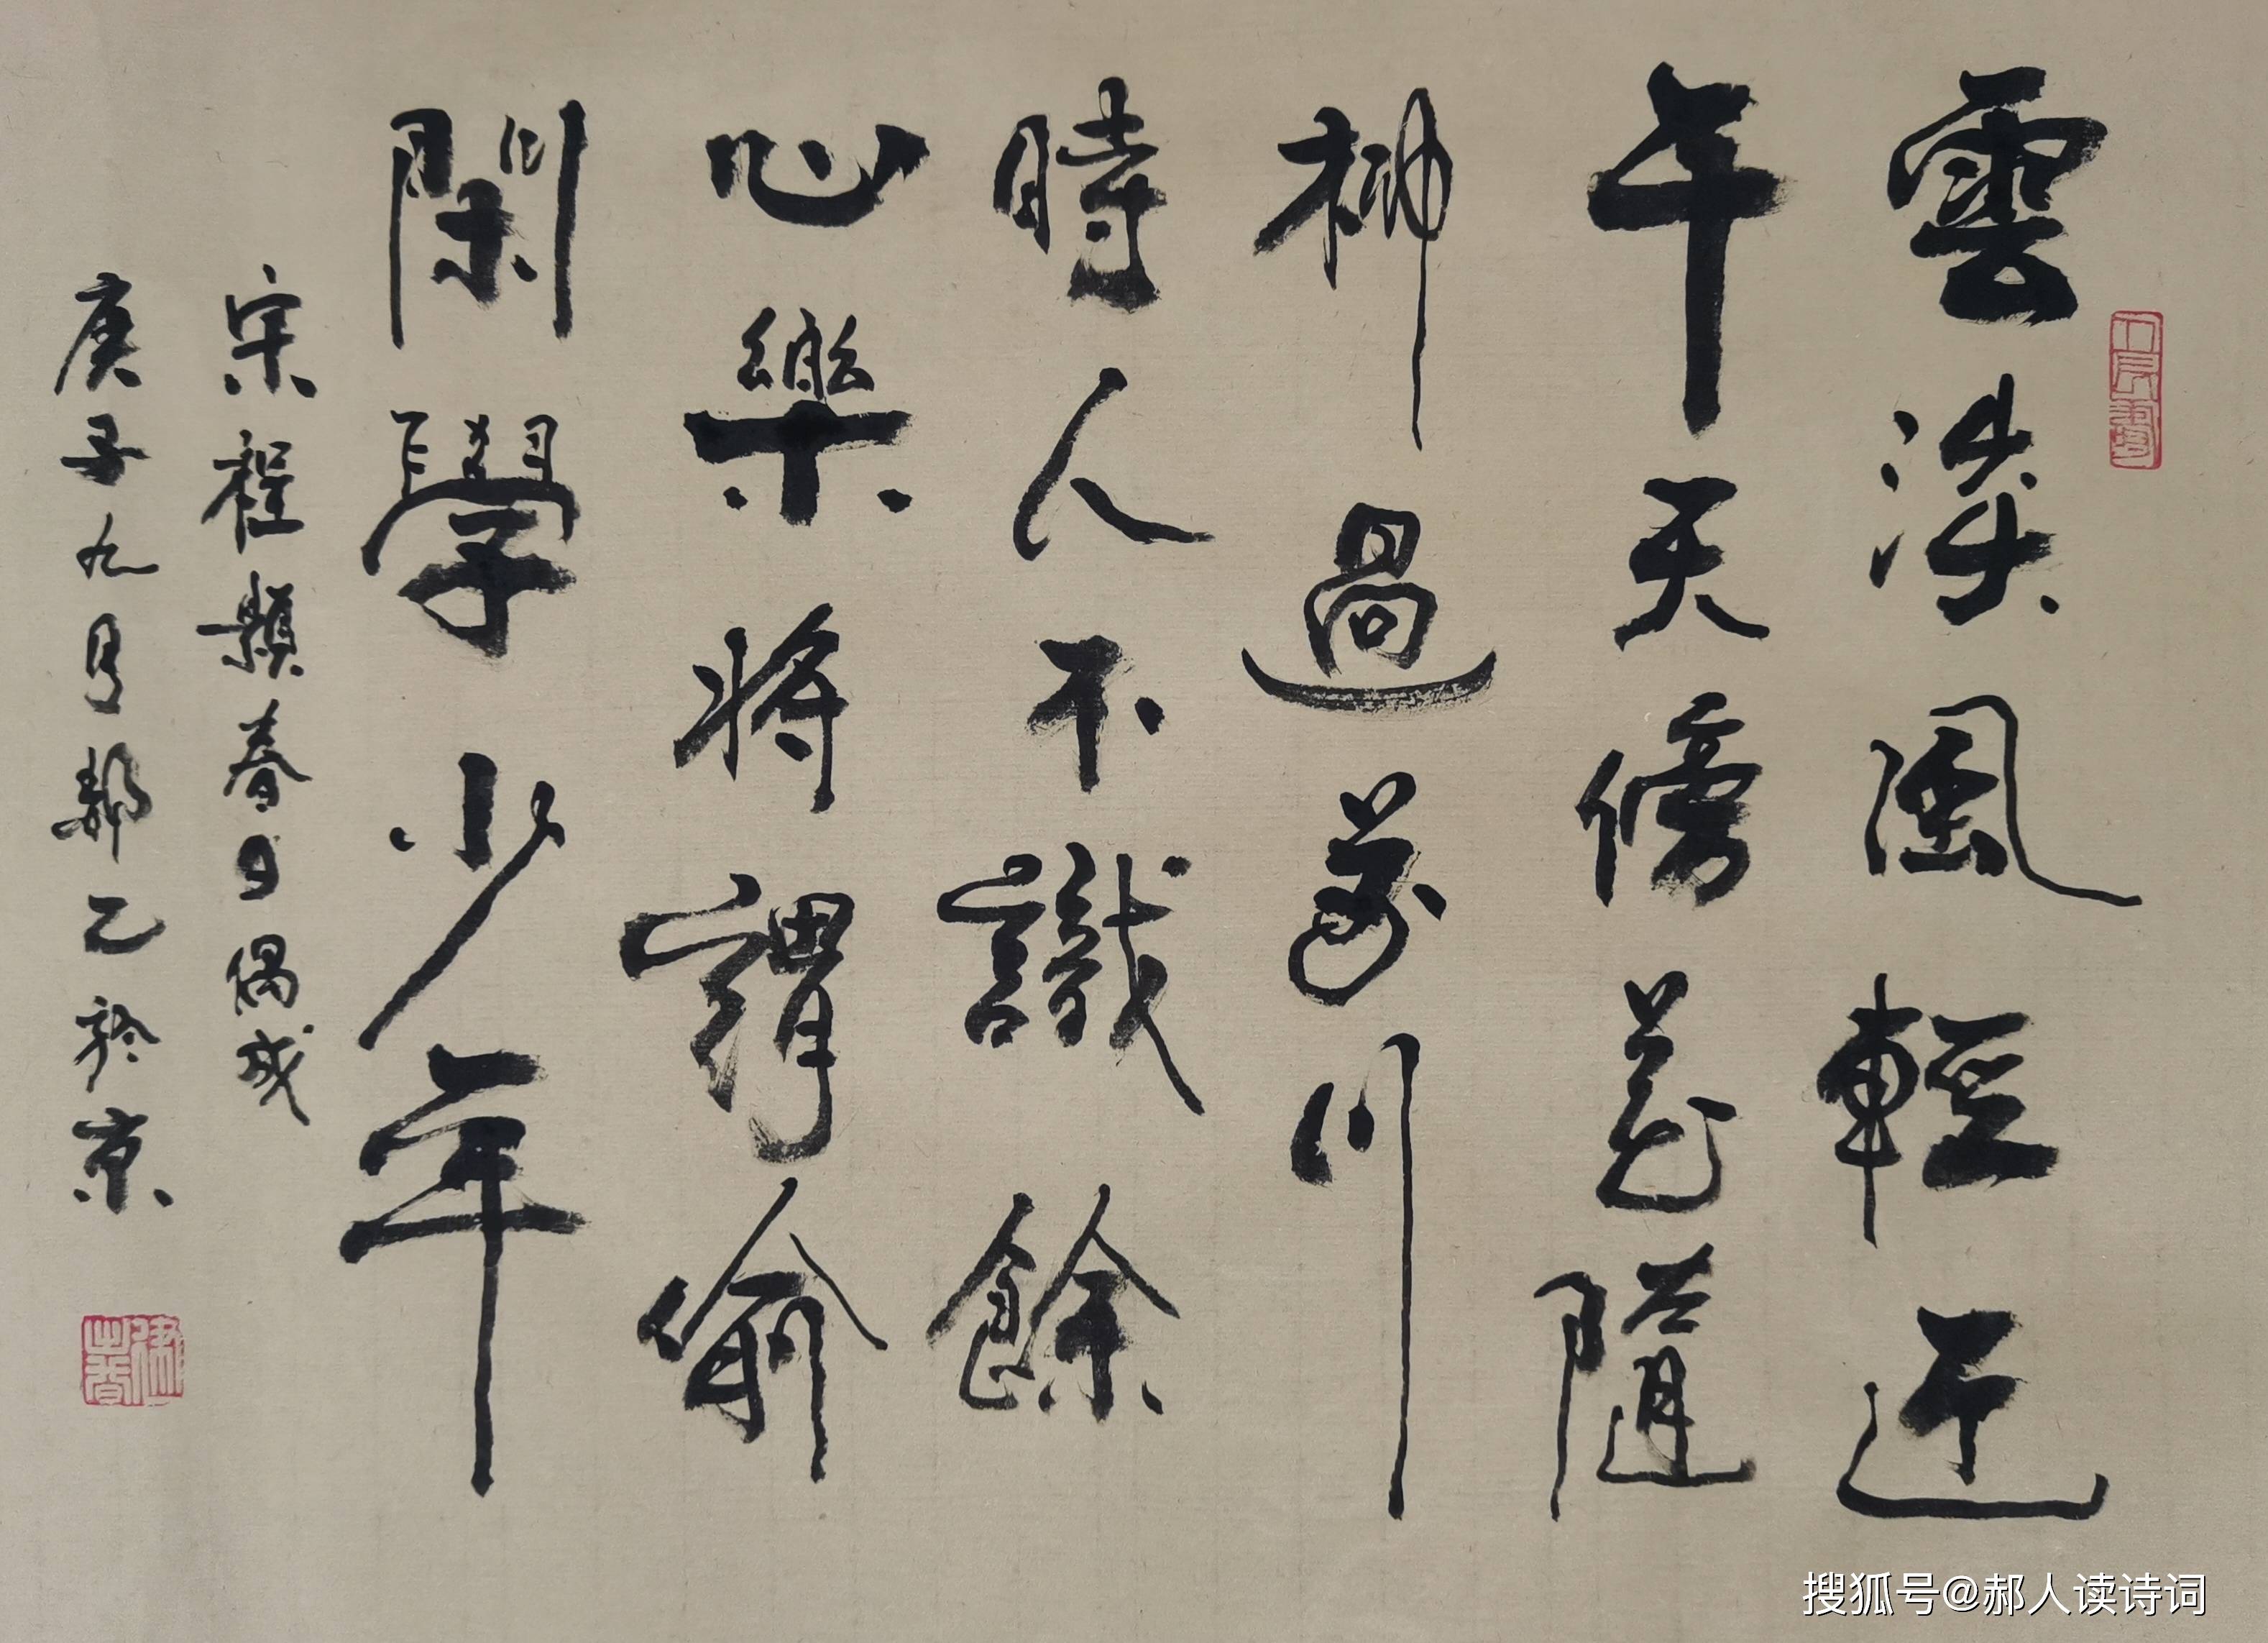 雲淡風輕近
午天傍花隨
柳過前川
時人不識余
心樂將謂偷
閑學少年
宋程顥春日偶成
庚子九月郝乙於京
搜狐号@郝人读诗词